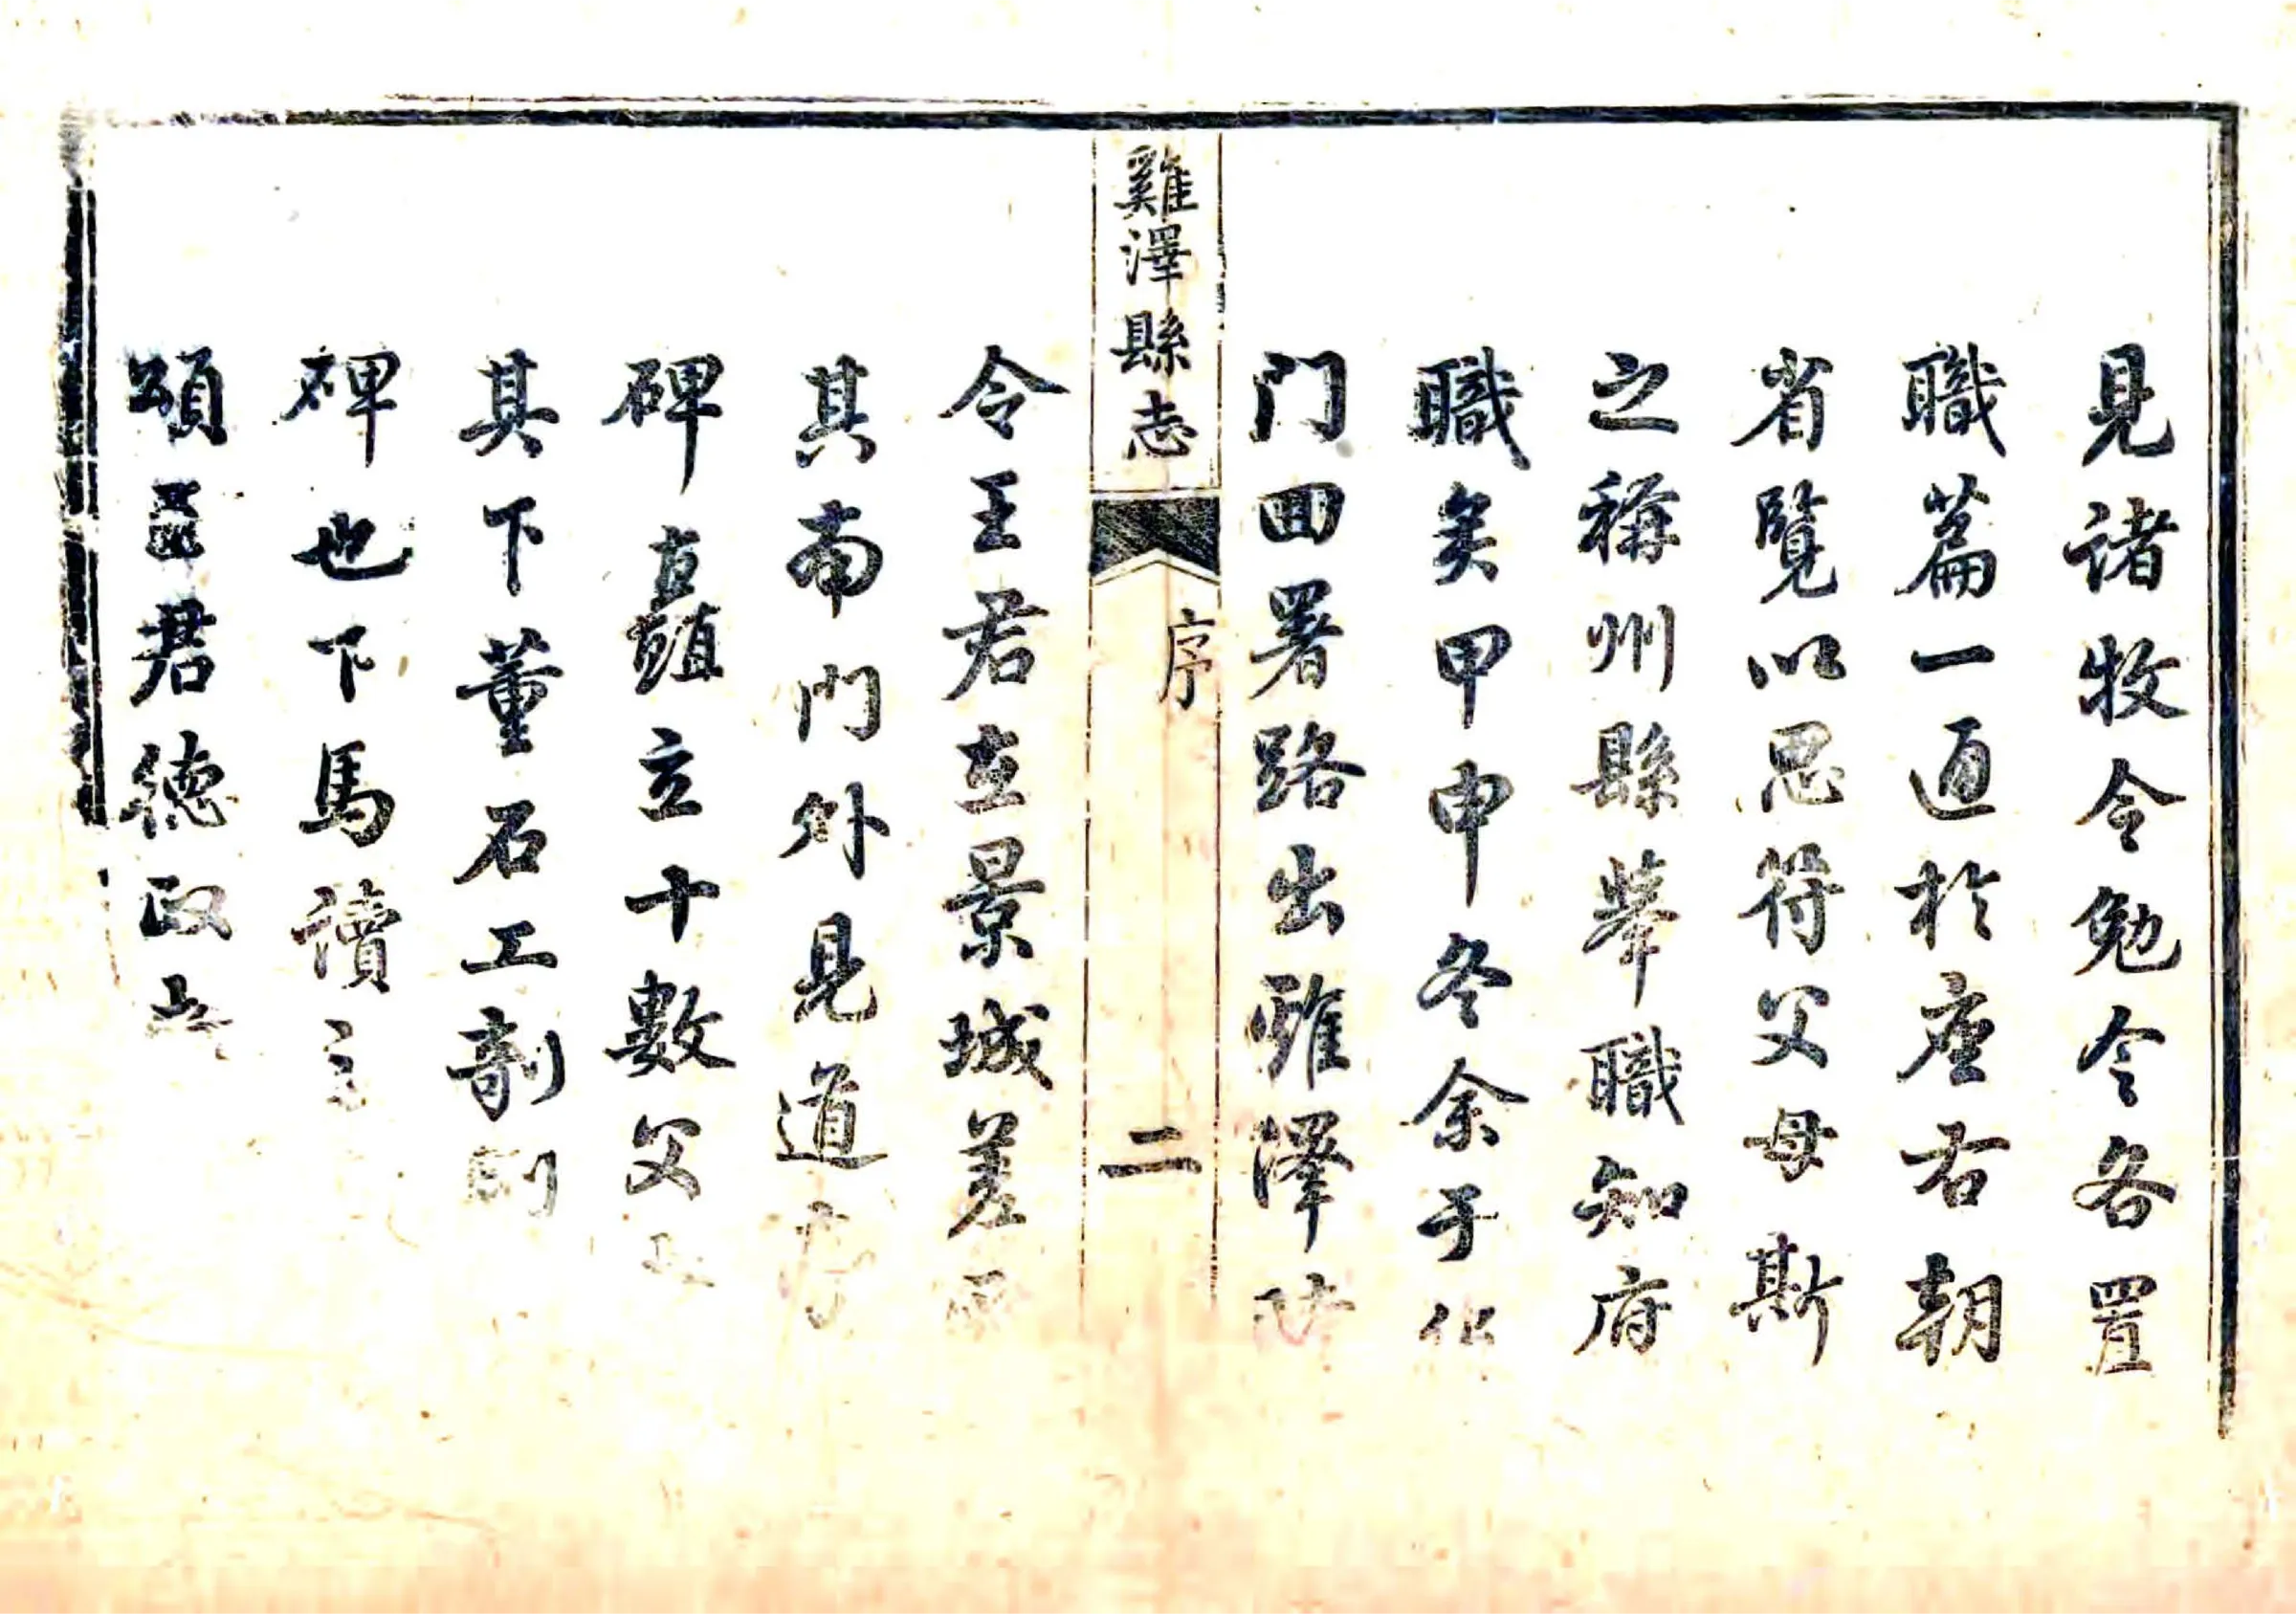 見諸牧令勉令各置
職篇一通於座右朝
省覽以思符父母斯
之稱州縣舉職知府
職矣甲申冬余于化
门回署路出雞澤時
雞澤縣志
序
二
令王君在景城差
其南门外見道
碑矗立十數父
其下董石工剞劂
碑也下馬讀之
頌王君德政